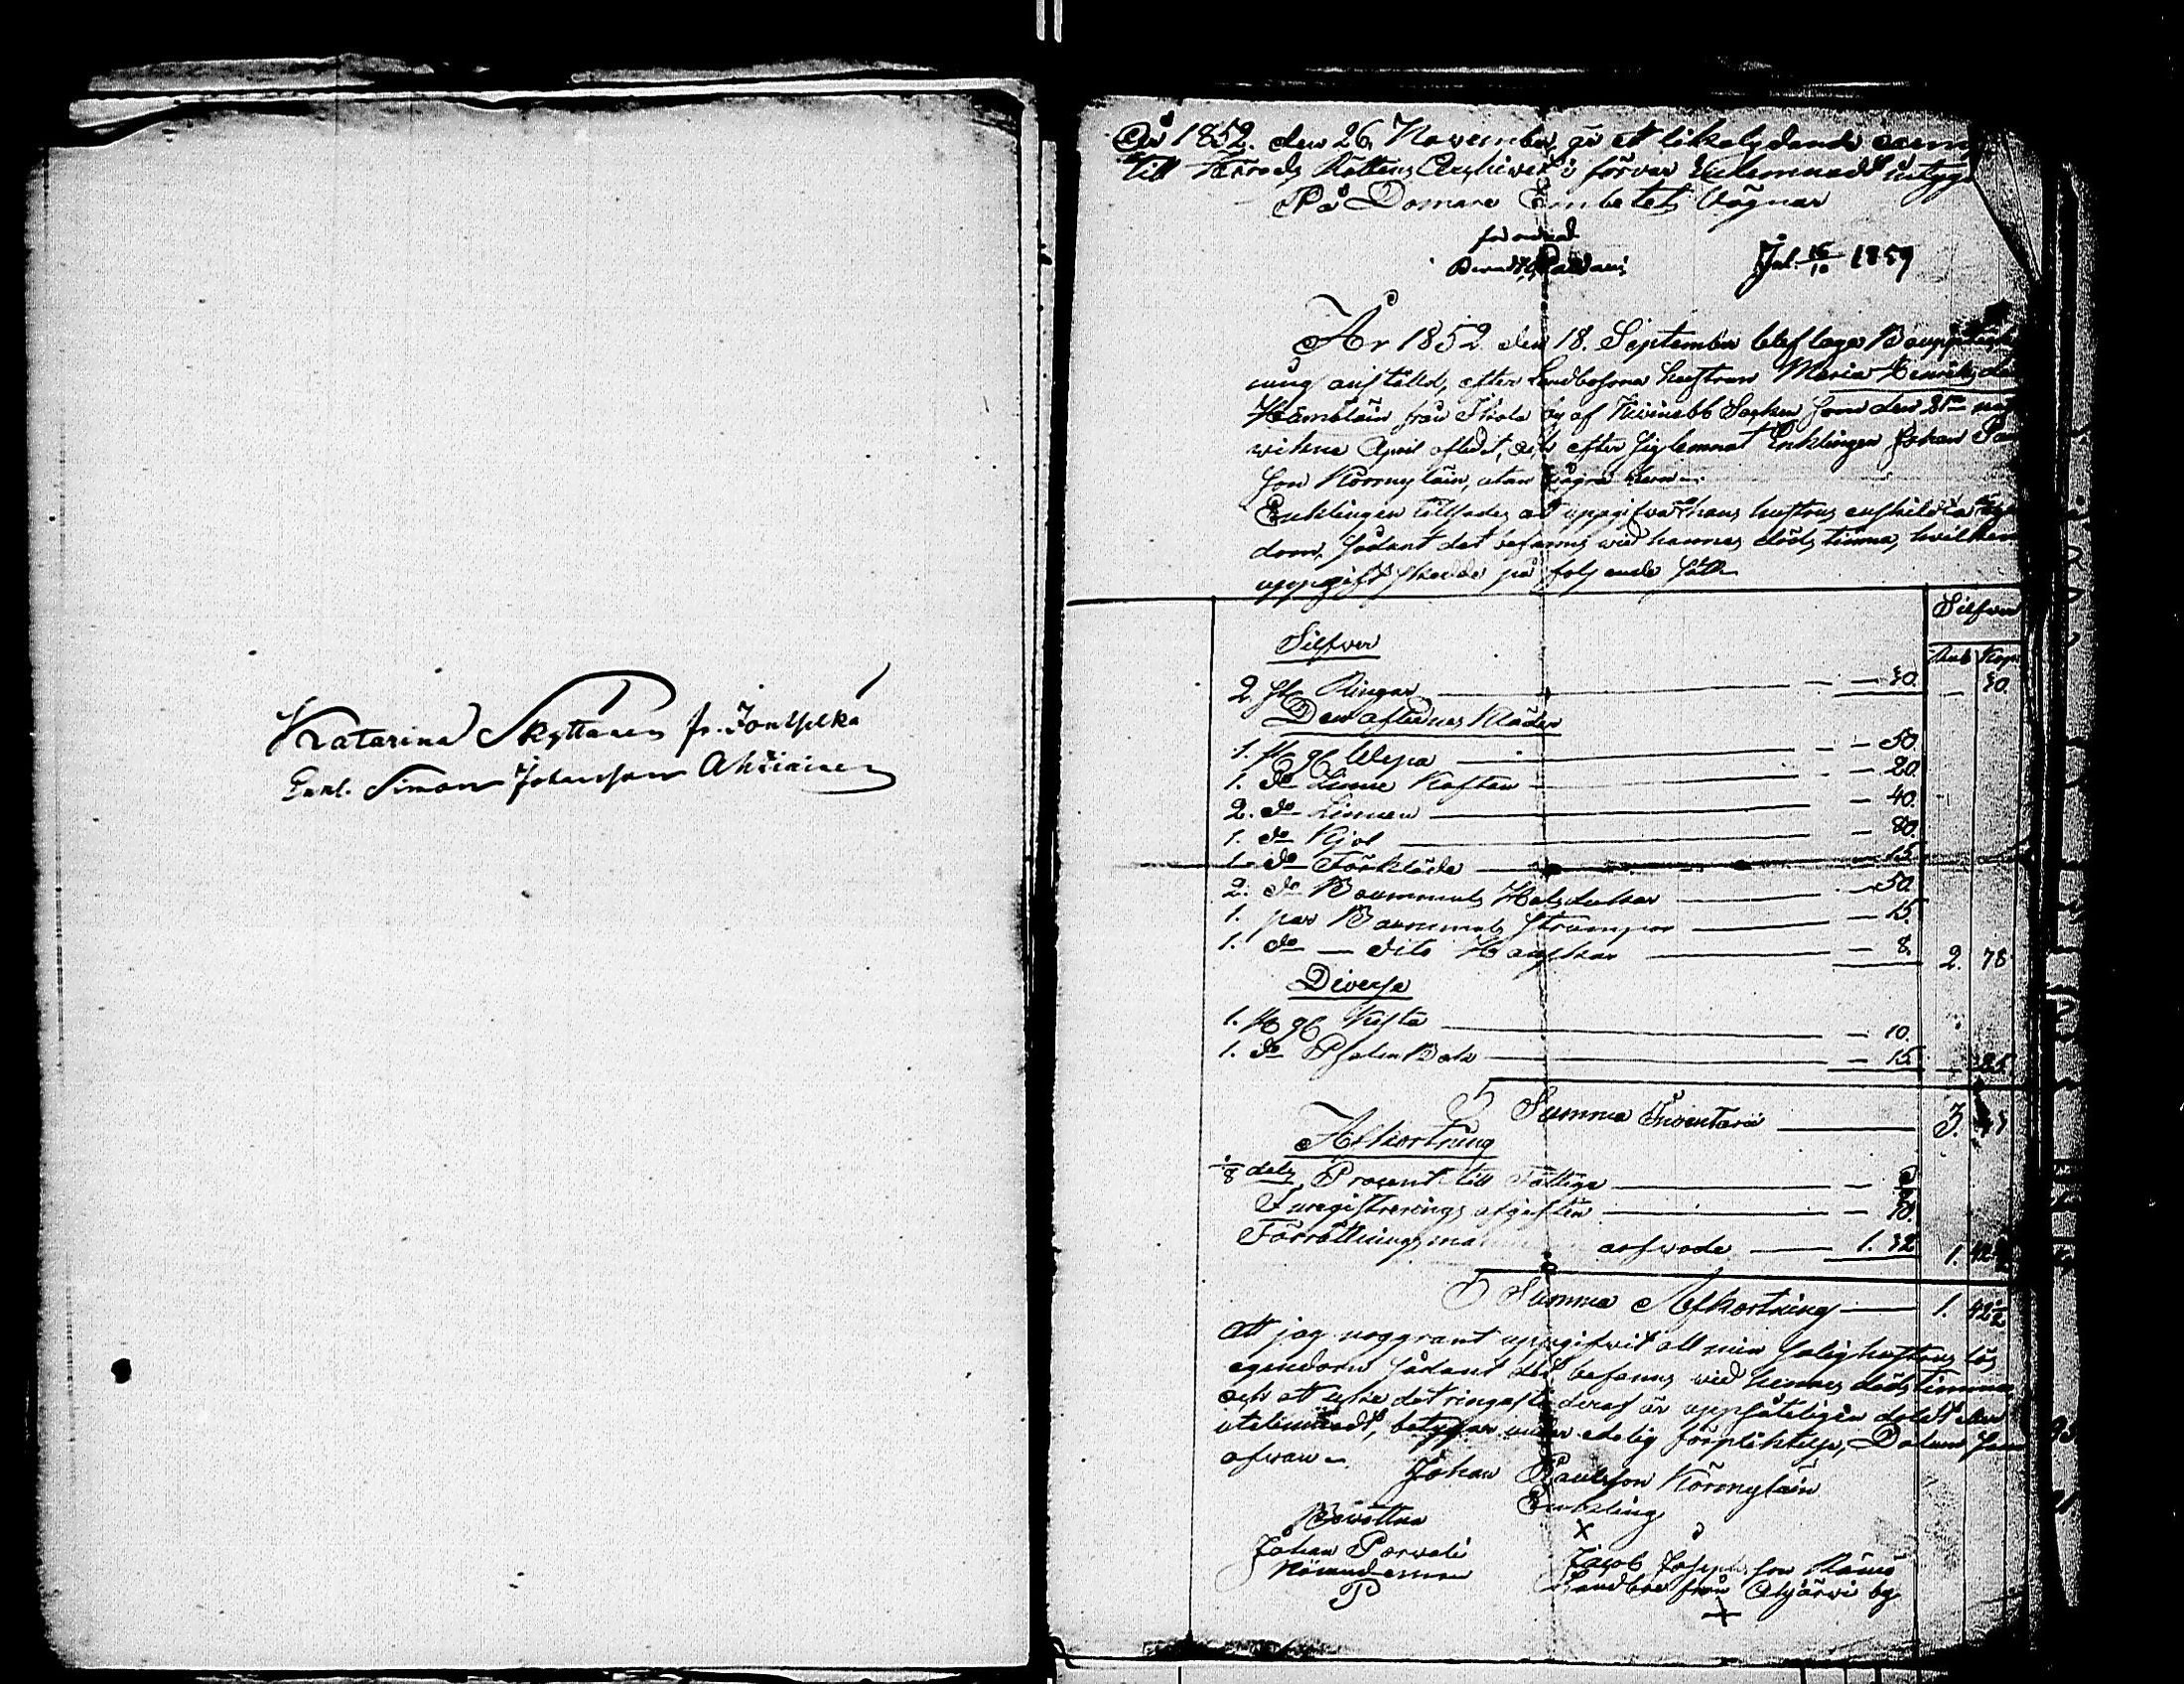 Katarina Skyttanen fr. Jontselkä
Enkl. Simon Johansson Ahviainen
År 1852. den 26 November, är ett likalydande exem
till Härads Rättens Archivet i förvar inlemnadt intyga
På Domare Embetets Vägnar
Jnl. 15/10 1859
År 1852 den 18. September blef laga Bouppteck
ning anställd, efter Landbosona hustrun Maria Henriksdr
Hämäläin från Ikola by af Kivinebb Socken som den 21
vikne April afledit, och efter sig lemnat Enklingen Johan Paul
son Körmyläin, utan några barn.
Enklingen tillsades att uppgifva hans hustrus enskilda egen
dom, sådant det befanns vid hennes döds timma, hvilken
uppgift skedde på följande sätt
Silfver
Rub Kop
Silfver
2 st. Ringar — — 30. — 30
Den aflidnes Kläder
1. st. gl. Wepa — — 50.
1. do Linne Kaftan — 20.
2. do Linnen — 40.
1. do Kjol — 80.
1. do Förkläde — 15.
2. do Boummuls Halsdukar — 50.
1. par Boummuls strumpor — 15.
1. do — dito Handskar — 8. 2. 78
Diverse
1. st. gl. Kista — 10.
1. do Psalm Bok — 15. 25
Summa Inventarii — 3.
Afkortning
1/8 dels Procent till Fattige —
Inregistrerings afgiften — 10.
Förrättnings arfvode — 1. 32 1. 42 1/2
Summa Afkortning — 1. 42 1/2
Att jag noggrant uppgifvit all min salig hustrus lös
egendom sådant det befanns vid hennes dödstimma,
och att icke det ringaste deraf är uppsåteligen doldt eller
utelemnadt, betygar under edelig förpliktelse, Datum som
ofvan.
Johan Paulsson Körmyläin
Enkling
X
Bevittna
Johan Parvali
Nämndeman
P
Jacob Josephsson Rämö
Landbo från Alajärvi by
X